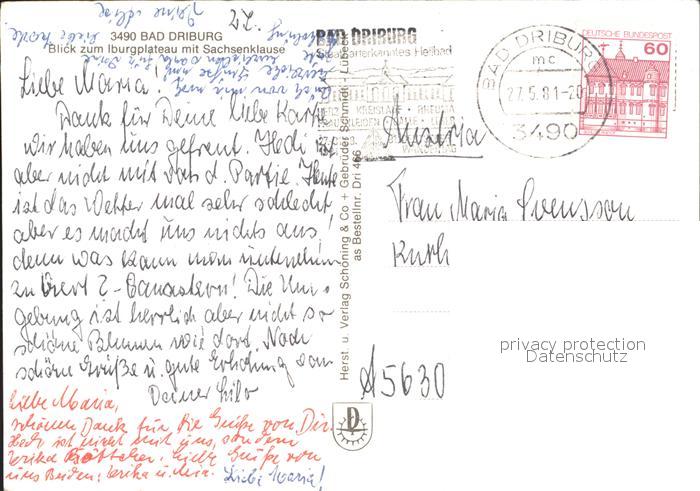 3490 BAD DRIBURG
Blick zum Iburgplateau mit Sachsenklause
Liebe Maria!
Dank für Deine liebe Karte
wir haben uns gefreut. Hedi ist
aber nicht mit von d. Partie. Heute
ist das Wetter mal sehr schlecht
aber es macht uns nichts aus!
denn was kann man unternehmen
zu Viert? - Canastern! Die Um-
gebung ist herrlich aber nicht so
schöne Blumen wie dort. Noch
schöne Grüße u. gute Erholung von
Deiner Lilo
Liebe Maria,
schönen Dank für die Grüße von Dir.
Hedi ist nicht mit uns, sondern
Erika Böttcher. Liebe Grüße von
uns Beiden, Erika u.
Liebe Maria!
Herst. u. Verlag Schöning & Co + Gebrüder Schmidt, Lübeck
as Bestellnr. Dri 466
BAD DRIBURG
Staatl. anerkanntes Heilbad
HERZ KREISLAUF RHEUMA
BAD DRIBURG
mc
27.5.81-20
3490
DEUTSCHE BUNDESPOST
60
Austria
Frau Maria Svensson
Kurh
A5630
privacy protection
Datenschutz